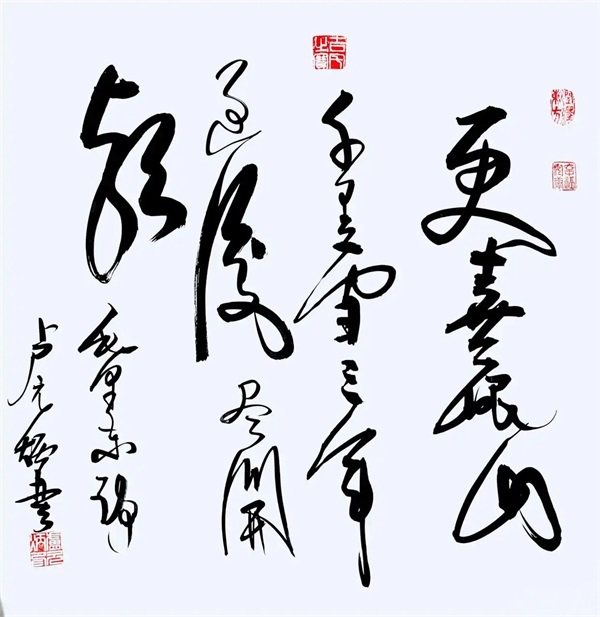 更喜岷山
千里雪三军
过後尽開
颜
毛泽东诗
卢元书